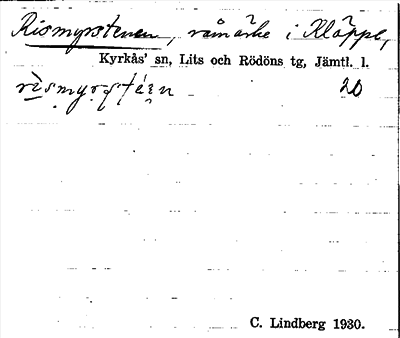 Rismyrstenen, råmärke i Kläppe,
Kyrkås' sn, Lits och Rödöns tg, Jämtl. l.
rismyrstéṇn 20
C. Lindberg 1930.